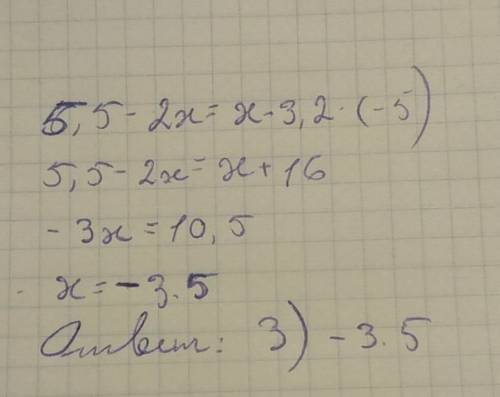 5,5 - 2x = x - 3,2 · (-5)
5,5 - 2x = x + 16
-3x = 10,5
x = -3.5
Ответ: 3) -3.5